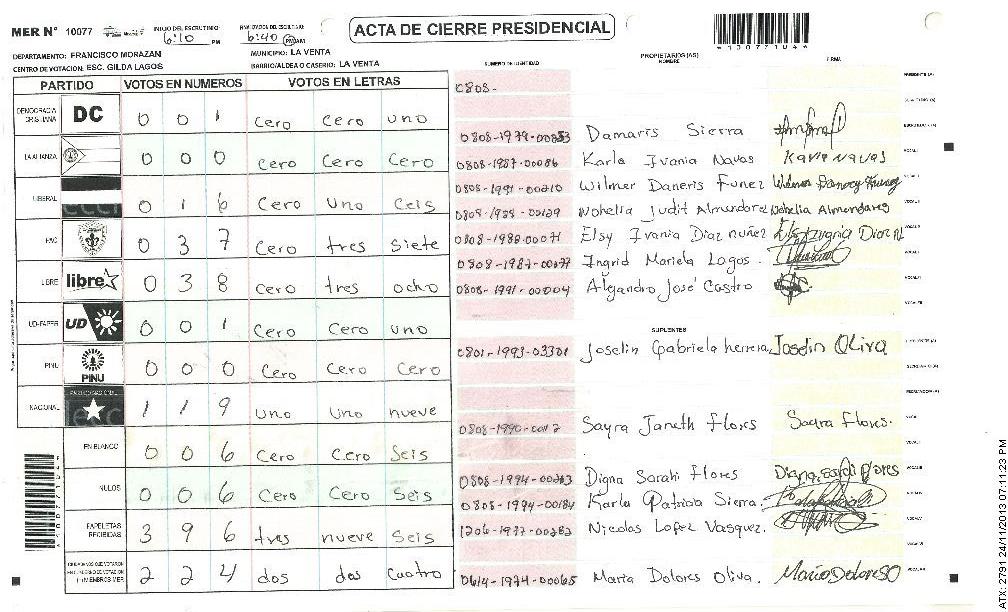 MER N° 10077 INICIO DEL ESCRUTINIO: 6:10 PM 6:40 PM AM ACTA DE CIERRE PRESIDENCIAL
DEPARTAMENTO: FRANCISCO MORAZAN MUNICIPIO: LA VENTA
CENTRO DE VOTACION: ESC. GILDA LAGOS BARRIO/ALDEA O CASERIO: LA VENTA
NUMERO DE IDENTIDAD PROPIETARIOS (AS) NOMBRE FIRMA
PARTIDO VOTOS EN NUMEROS VOTOS EN LETRAS
DEMOCRACIA CRISTIANA DC 0 0 1 cero cero uno
LA ALIANZA 0 0 0 cero cero cero
LIBERAL 0 1 6 cero uno ceis
PAC 0 3 7 cero tres siete
LIBRE libre 0 3 8 cero tres ocho
UD-FAPER UD 0 0 1 cero cero uno
PINU PINU 0 0 0 cero cero cero
NACIONAL 1 1 9 uno uno nueve
EN BLANCO 0 0 6 cero cero seis
NULOS 0 0 6 cero cero seis
PAPELETAS RECIBIDAS 3 9 6 tres nueve seis
2 2 4 dos dos cuatro
0808-
Damaris Sierra
0808-1987-00086 Karla Ivania Navas Karla Navas
0808-1991-00210 Wilmer Daneris Funez
Nohelia Judit Almendares Nohelia Almendares
0808-1988-00071 Elsy Ivania Diaz nuñez
0808-1987-00077 Ingrid Mariela Lagos.
0808-1991-00004 Alejandro José Castro
SUPLENTES
0801-1993-03301 Joselin Gabriela herrera Joselin Oliva
Sayra Janeth flores Sayra Flores.
Digna Sarahi flores
0808-1994-00184 Karla Patricia Sierra.
Nicolas Lopez Vasquez.
0614-1974-00065 Maria Dolores Oliva.
ATX: 2791 24/11/2013 07:11:23 PM